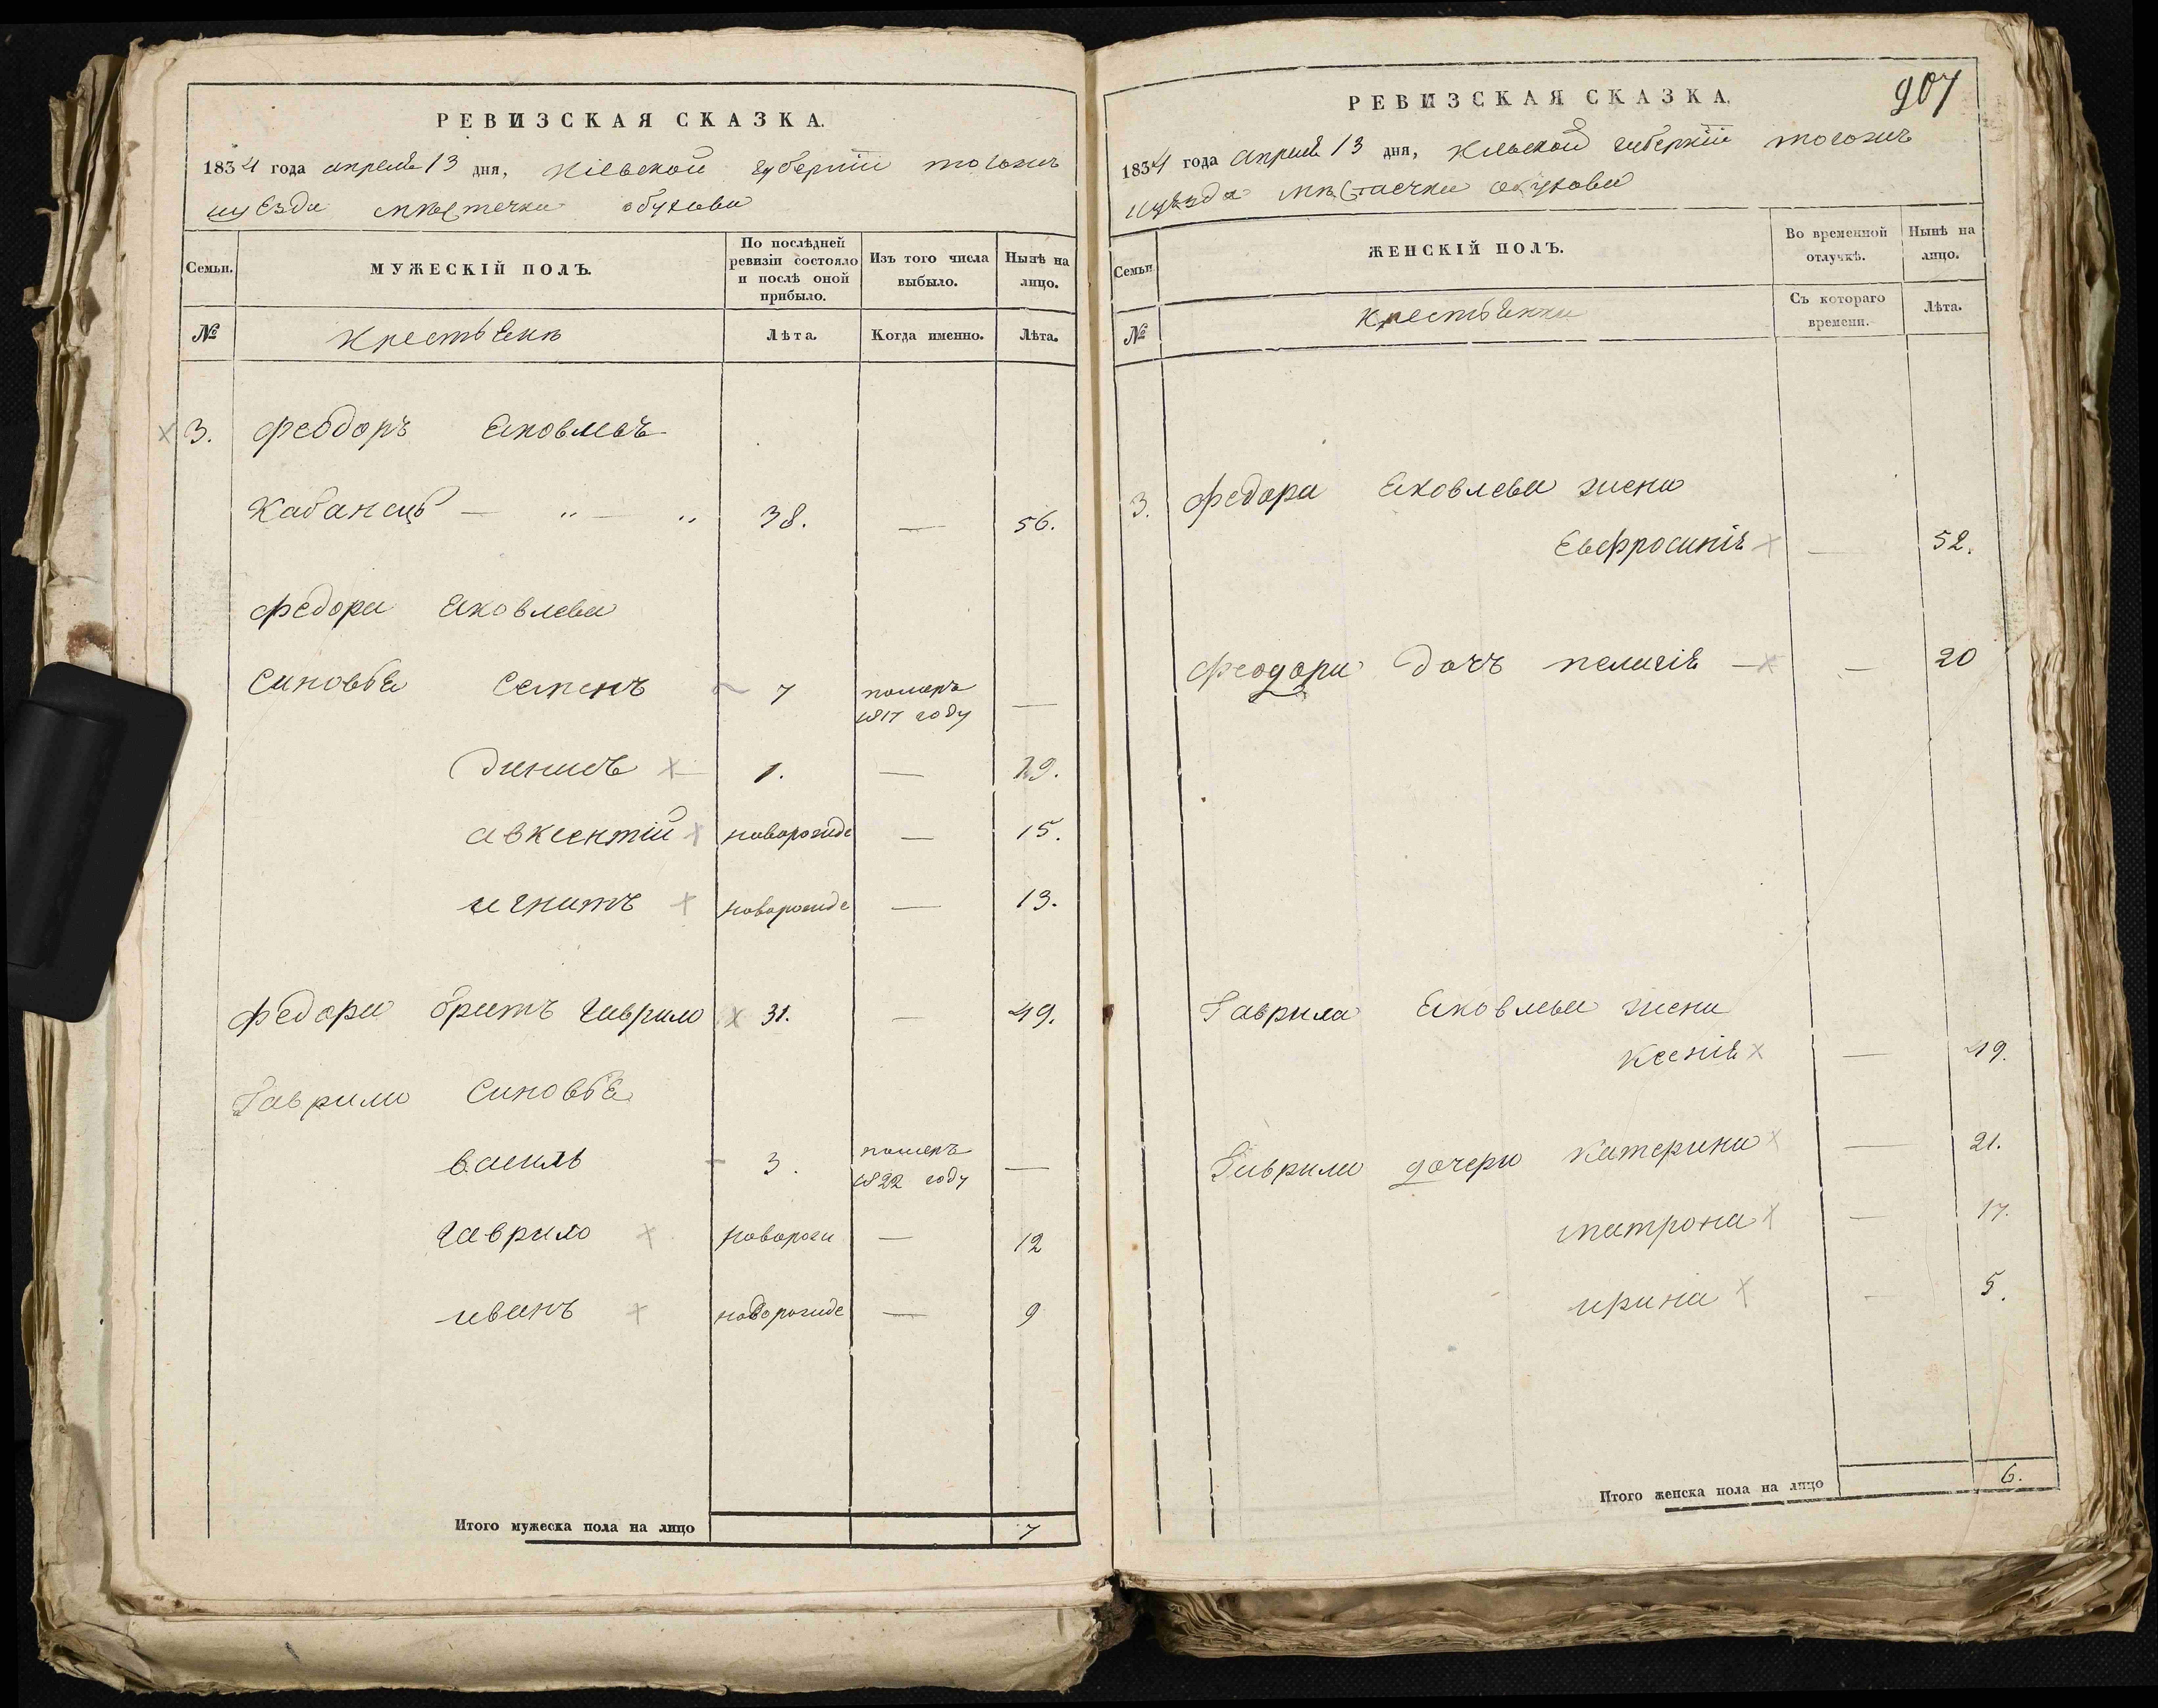 РЕВИЗСКАЯ СКАЗКА.
1834 года апреля 13 дня, Кіевской губерніи тогожъ
уезда мѣстечка обухова
Семьи.
МУЖЕСКІЙ ПОЛЪ.
По послѣдней ревизіи состояло и послѣ оной прибыло.
Изъ того числа выбыло.
Нынѣ на лицо.
№
крестьянъ
Лѣта.
Когда именно.
Лѣта.
3. Феодоръ Яковлевъ
Кабанецъ — „ — „ 38. — 56.
Федора Яковлева
Синовья Семенъ 7 померъ 1817 году —
динисъ 1. — 19.
авксентий новорожде — 15.
игнатъ новорожде — 13.
Федора братъ гаврило 31. — 49.
Гаврила Синовья
василь 3. померъ 1822 году —
гаврило новорож — 12
иванъ новорожде — 9
Итого мужеска пола на лицо 7
907
РЕВИЗСКАЯ СКАЗКА.
1834 года апреля 13 дня, Кіевской губерніи тогожъ
уѣзда мѣстаечка обухова
Семьи
ЖЕНСКІЙ ПОЛЪ.
Во временной отлучкѣ.
Нынѣ на лицо.
№
крестьянки
Съ котораго времени.
Лѣта.
3. Федора Яковлева жена
Евфросинія — 52.
Феодора дочъ пелагія — — 20
Гаврила Яковлева жена
Ксенія — 49.
Гаврила дочери Катерина — 21.
матрона — 17.
ирина — 5.
Итого женска пола на лицо 6.